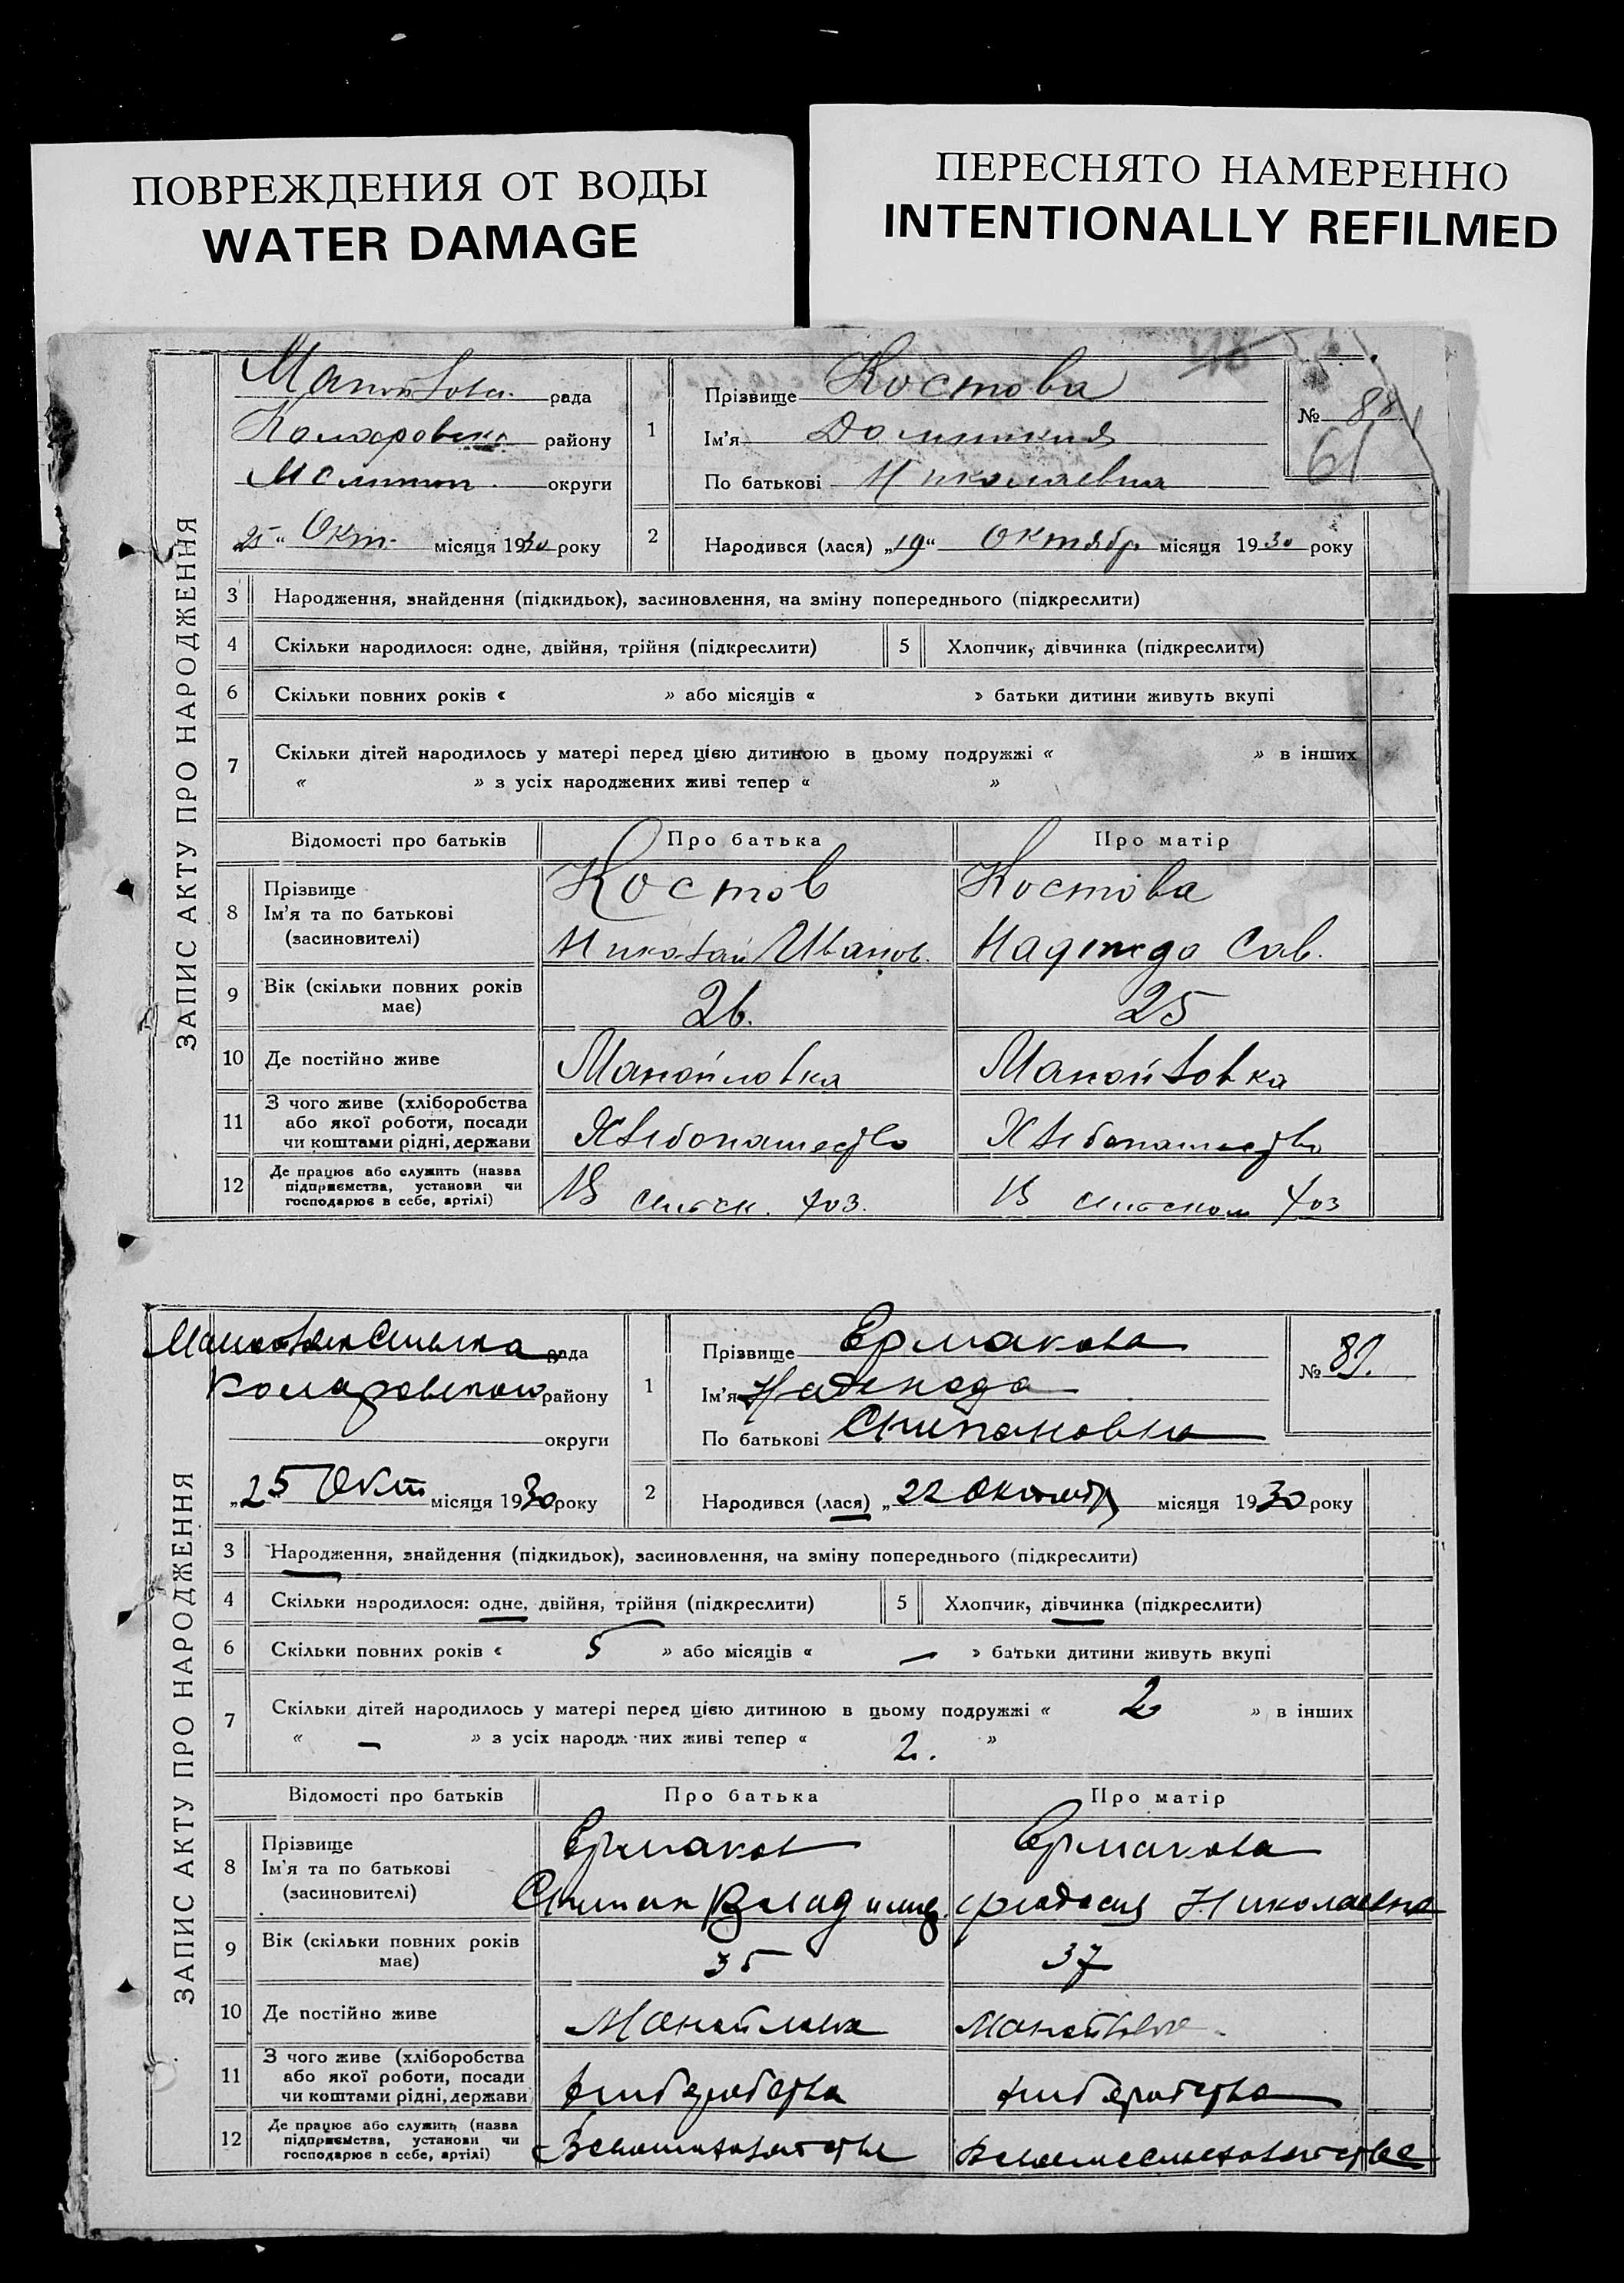 ПОВРЕЖДЕНИЯ ОТ ВОДЫ
WATER DAMAGE
ПЕРЕСНЯТО НАМЕРЕННО
INTENTIONALLY REFILMED
ЗАПИС АКТУ ПРО НАРОДЖЕННЯ
рада
району
округи
25 " Окт. місяця 1930 року
1
Прізвище Костова
Ім'я
По батькові Николаевна
№ 88
61
2 Народився (лася) „19“ Октябр місяця 1930 року
3 Народження, знайдення (підкидьок), засиновлення, на зміну попереднього (підкреслити)
4 Скільки народилося: одне, двійня, трійня (підкреслити) 5 Хлопчик, дівчинка (підкреслити)
6 Скільки повних років « » або місяців « » батьки дитини живуть вкупі
7 Скільки дітей народилось у матері перед цією дитиною в цьому подружжі « » в інших
« » з усіх народжених живі тепер « »
Відомості про батьків Про батька Про матір
8 Прізвище Костов Костова
Ім'я та по батькові
(засиновителі) Николай Иванов. Надежда Сав.
9 Вік (скільки повних років
має) 26. 25
10 Де постійно живе Манойловка Манойловка
11 З чого живе (хліборобства
або якої роботи, посади
чи коштами рідні, держави Хлебопашество Хлебопашество
12 Де працює або служить (назва
підприємства, установи чи
господарює в себе, артілі) В сельск. хоз. В сельском хоз
ЗАПИС АКТУ ПРО НАРОДЖЕННЯ
рада
району
округи
„25 Окт місяця 1930 року
1
Прізвище Ермакова
Ім'я Надежда
По батькові Степановна
№ 89.
2 Народився (лася) „22 Октябр місяця 1930 року
3 Народження, знайдення (підкидьок), засиновлення, на зміну попереднього (підкреслити)
4 Скільки народилося: одне, двійня, трійня (підкреслити) 5 Хлопчик, дівчинка (підкреслити)
6 Скільки повних років « 5 » або місяців « — » батьки дитини живуть вкупі
7 Скільки дітей народилось у матері перед цією дитиною в цьому подружжі « 2 » в інших
« — » з усіх народж них живі тепер « 2. »
Відомості про батьків Про батька Про матір
8 Прізвище Ермаков Ермакова
Ім'я та по батькові
(засиновителі) Степан Владимир. Феодосия Николаевна
9 Вік (скільки повних років
має) 35 37
10 Де постійно живе Манойловка Манойловка
11 З чого живе (хліборобства
або якої роботи, посади
чи коштами рідні, держави
12 Де працює або служить (назва
підприємства, установи чи
господарює в себе, артілі)